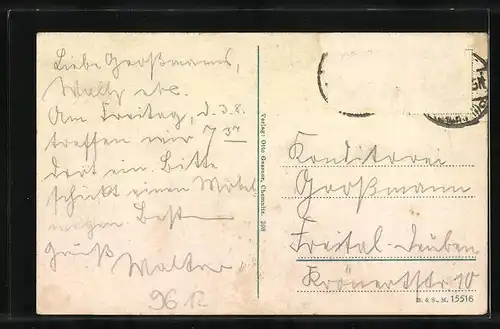 Liebe Großmanns,
Wally etc.
Am Freitag, d. 3.8.
treffen wir 7 37
dort ein. Bitte
schickt einen Möbel
wagen. Besten
Gruß
Walter
96 12
Verlag: Otto Gessner, Chemnitz. 308
Konditorei
Großmann
Freital-Deuben
Krönertstr 10
D. & S., M. 15516